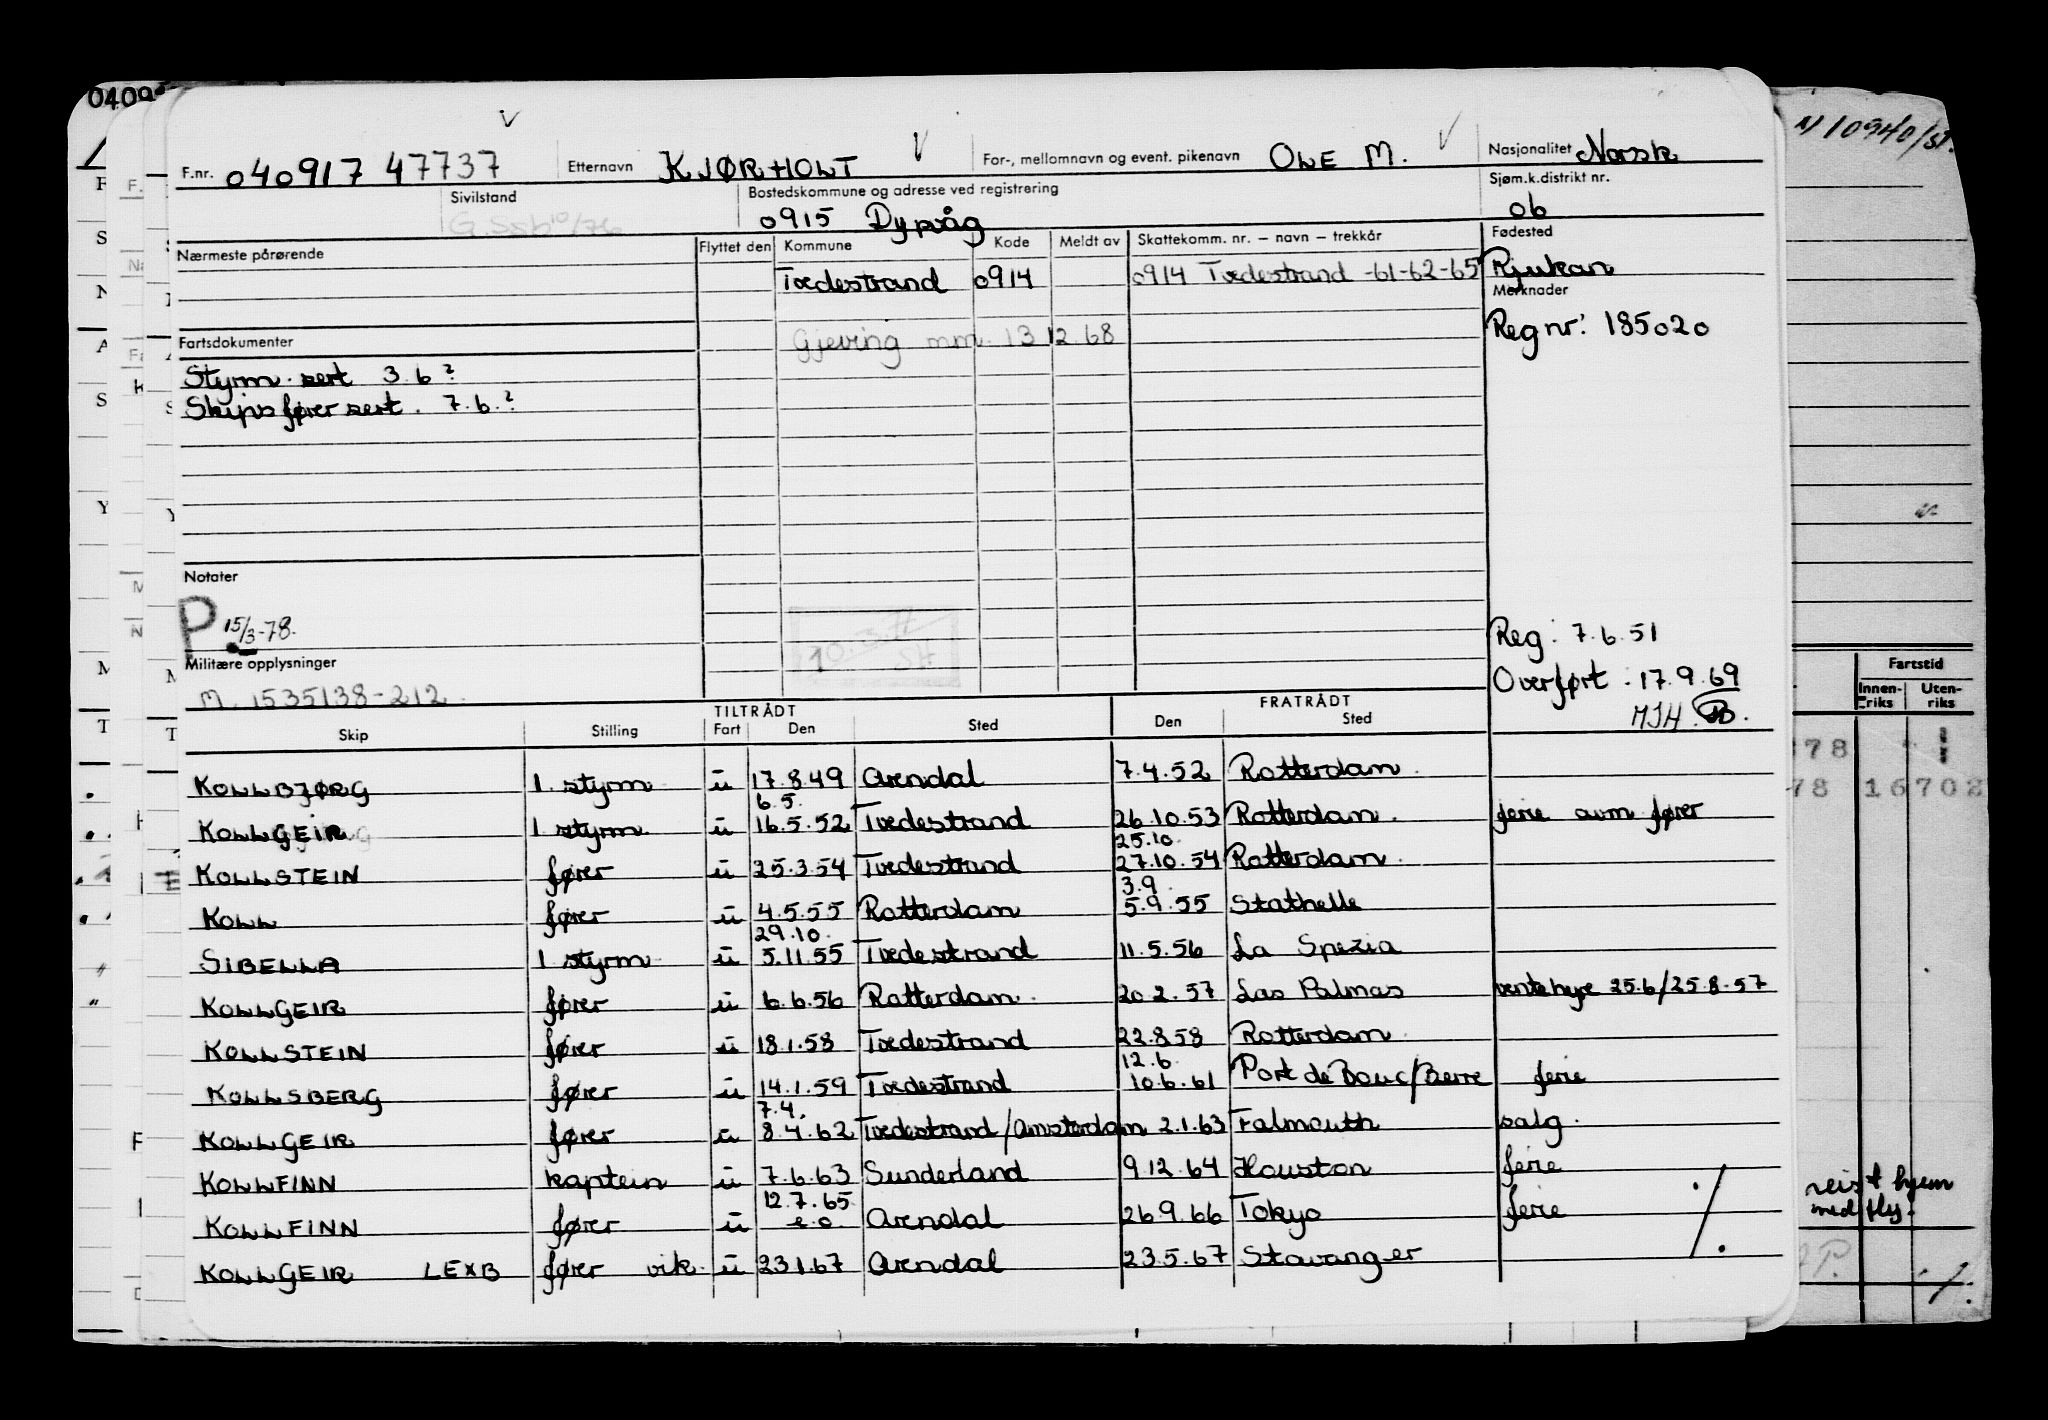 0400
N 10940/51.
F.nr. 040917 47737 Etternavn KJØRHOLT For-, mellomnavn og event. pikenavn OLE M. Nasjonalitet Norsk
Sivilstand Bostedskommune og adresse ved registrering Sjøm.k.distrikt nr.
G.Ssb 10/76 0915 Dypvåg 06
Nærmeste pårørende Flyttet den Kommune Kode Meldt av Skattekomm. nr. – navn – trekkår Fødested
Tvedestrand 0914 0914 Tvedestrand -61-62-65 Rjukan
Merknader
Reg nr: 185020
Fartsdokumenter Gjeving mm. 13 12.68
Styrm. sert 3.6?
Skipsfører sert. 7.6.?
Notater
P 15/3-78.
10.3.77
SH
Reg: 7.6.51
Militære opplysninger Overført: 17.9.69
M. 1535138-212. MJH.
TILTRÅDT FRATRÅDT
Skip Stilling Fart Den Sted Den Sted
KOLLBJØRG 1. styrm u 17.8.49 Arendal 7.4.52 Rotterdam
6.5.
KOLLGEIR 1 styrm u 16.5.52 Tvedestrand 26.10.53 Rotterdam. ferie avm fører
25.10.
KOLLSTEIN fører u 25.3.54 Tvedestrand 27.10.54 Rotterdam.
3.9.
KOLL fører u 4.5.55 Rotterdam 5.9.55 Stathelle
29.10.
SIBELLA 1 styrm u 5.11.55 Tvedestrand 11.5.56 La Spezia
KOLLGEIR fører u 6.6.56 Rotterdam. 20.2.57 Las Palmas ventehyre 25.6/25.8.57
KOLLSTEIN fører u 18.1.58 Tvedestrand 22.8.58 Rotterdam.
12.6.
KOLLSBERG fører u 14.1.59 Tvedestrand 10.6.61 Port de Bouc/Berre ferie
7.4.
KOLLGEIR fører u 8.4.62 Tvedestrand/Amsterdam 2.1.63 Falmouth salg.
KOLLFINN kaptein u 7.6.63 Sunderland 9.12.64 Houston ferie
12.7.65
KOLLFINN fører u e.o. Arendal 26.9.66 Tokyo ferie
KOLLGEIR LEXB fører vik. u 23.1.67 Arendal 23.5.67 Stavanger
Fartstid
Innen-
riks
Uten-
riks
78
78 16702
reist hjem
med fly.